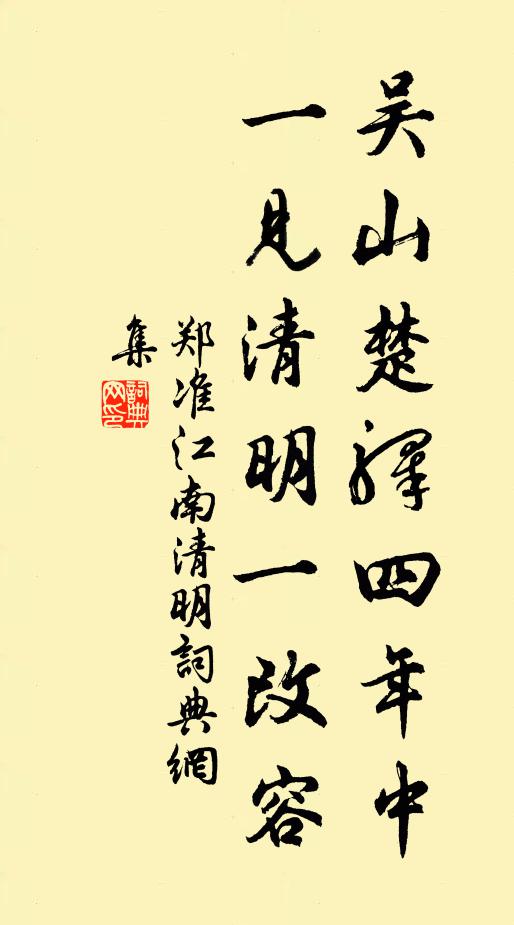 吴山楚驿四年中
一见清明一改容
郑准江南清明詞典網
集
詞典网印